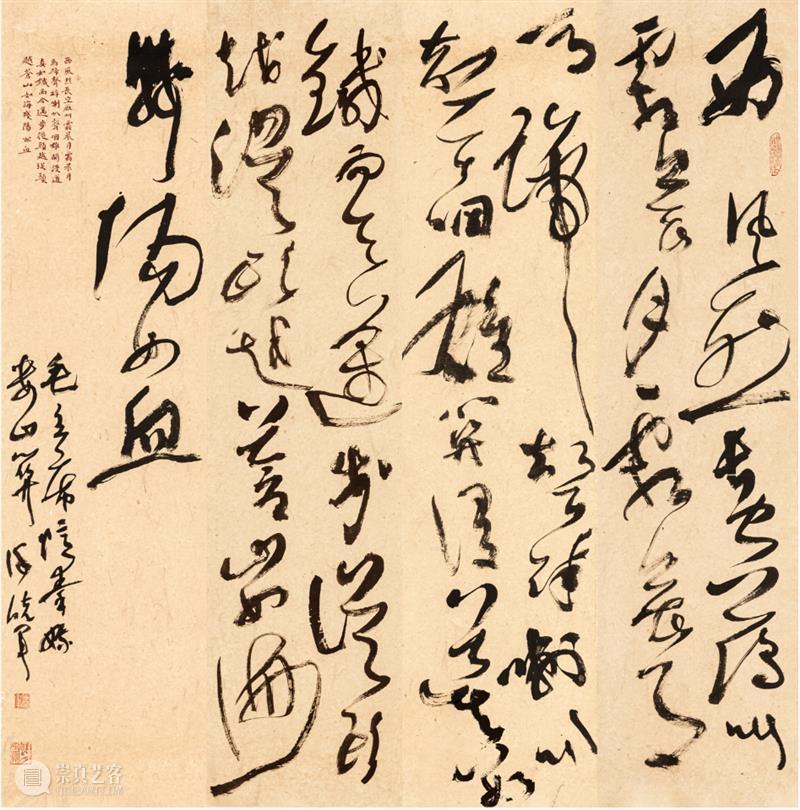 西風烈長空雁叫
霜晨月霜晨月
馬蹄聲碎喇叭
聲咽雄關漫道真如
鐵而今邁步從頭
越從頭越蒼山如海
殘陽如血
西風烈長空雁叫霜晨月霜晨月
馬蹄聲碎喇叭聲咽雄關漫道
真如鐵而今邁步從頭越從頭
越蒼山如海殘陽如血
毛主席憶秦娥
婁山關
崇真艺客